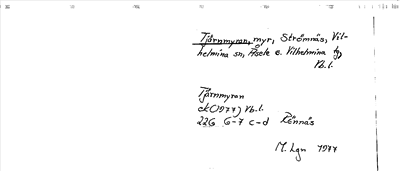 Tjärnmyran, myr, Strömnäs, Vil-
helmina sn, Åsele o. Vilhelmina tg,
Vb.l.
Tjärnmyran
ek(1977) Vb.l.
22G 6-7 c-d Rönnäs
M. Lgn 1977